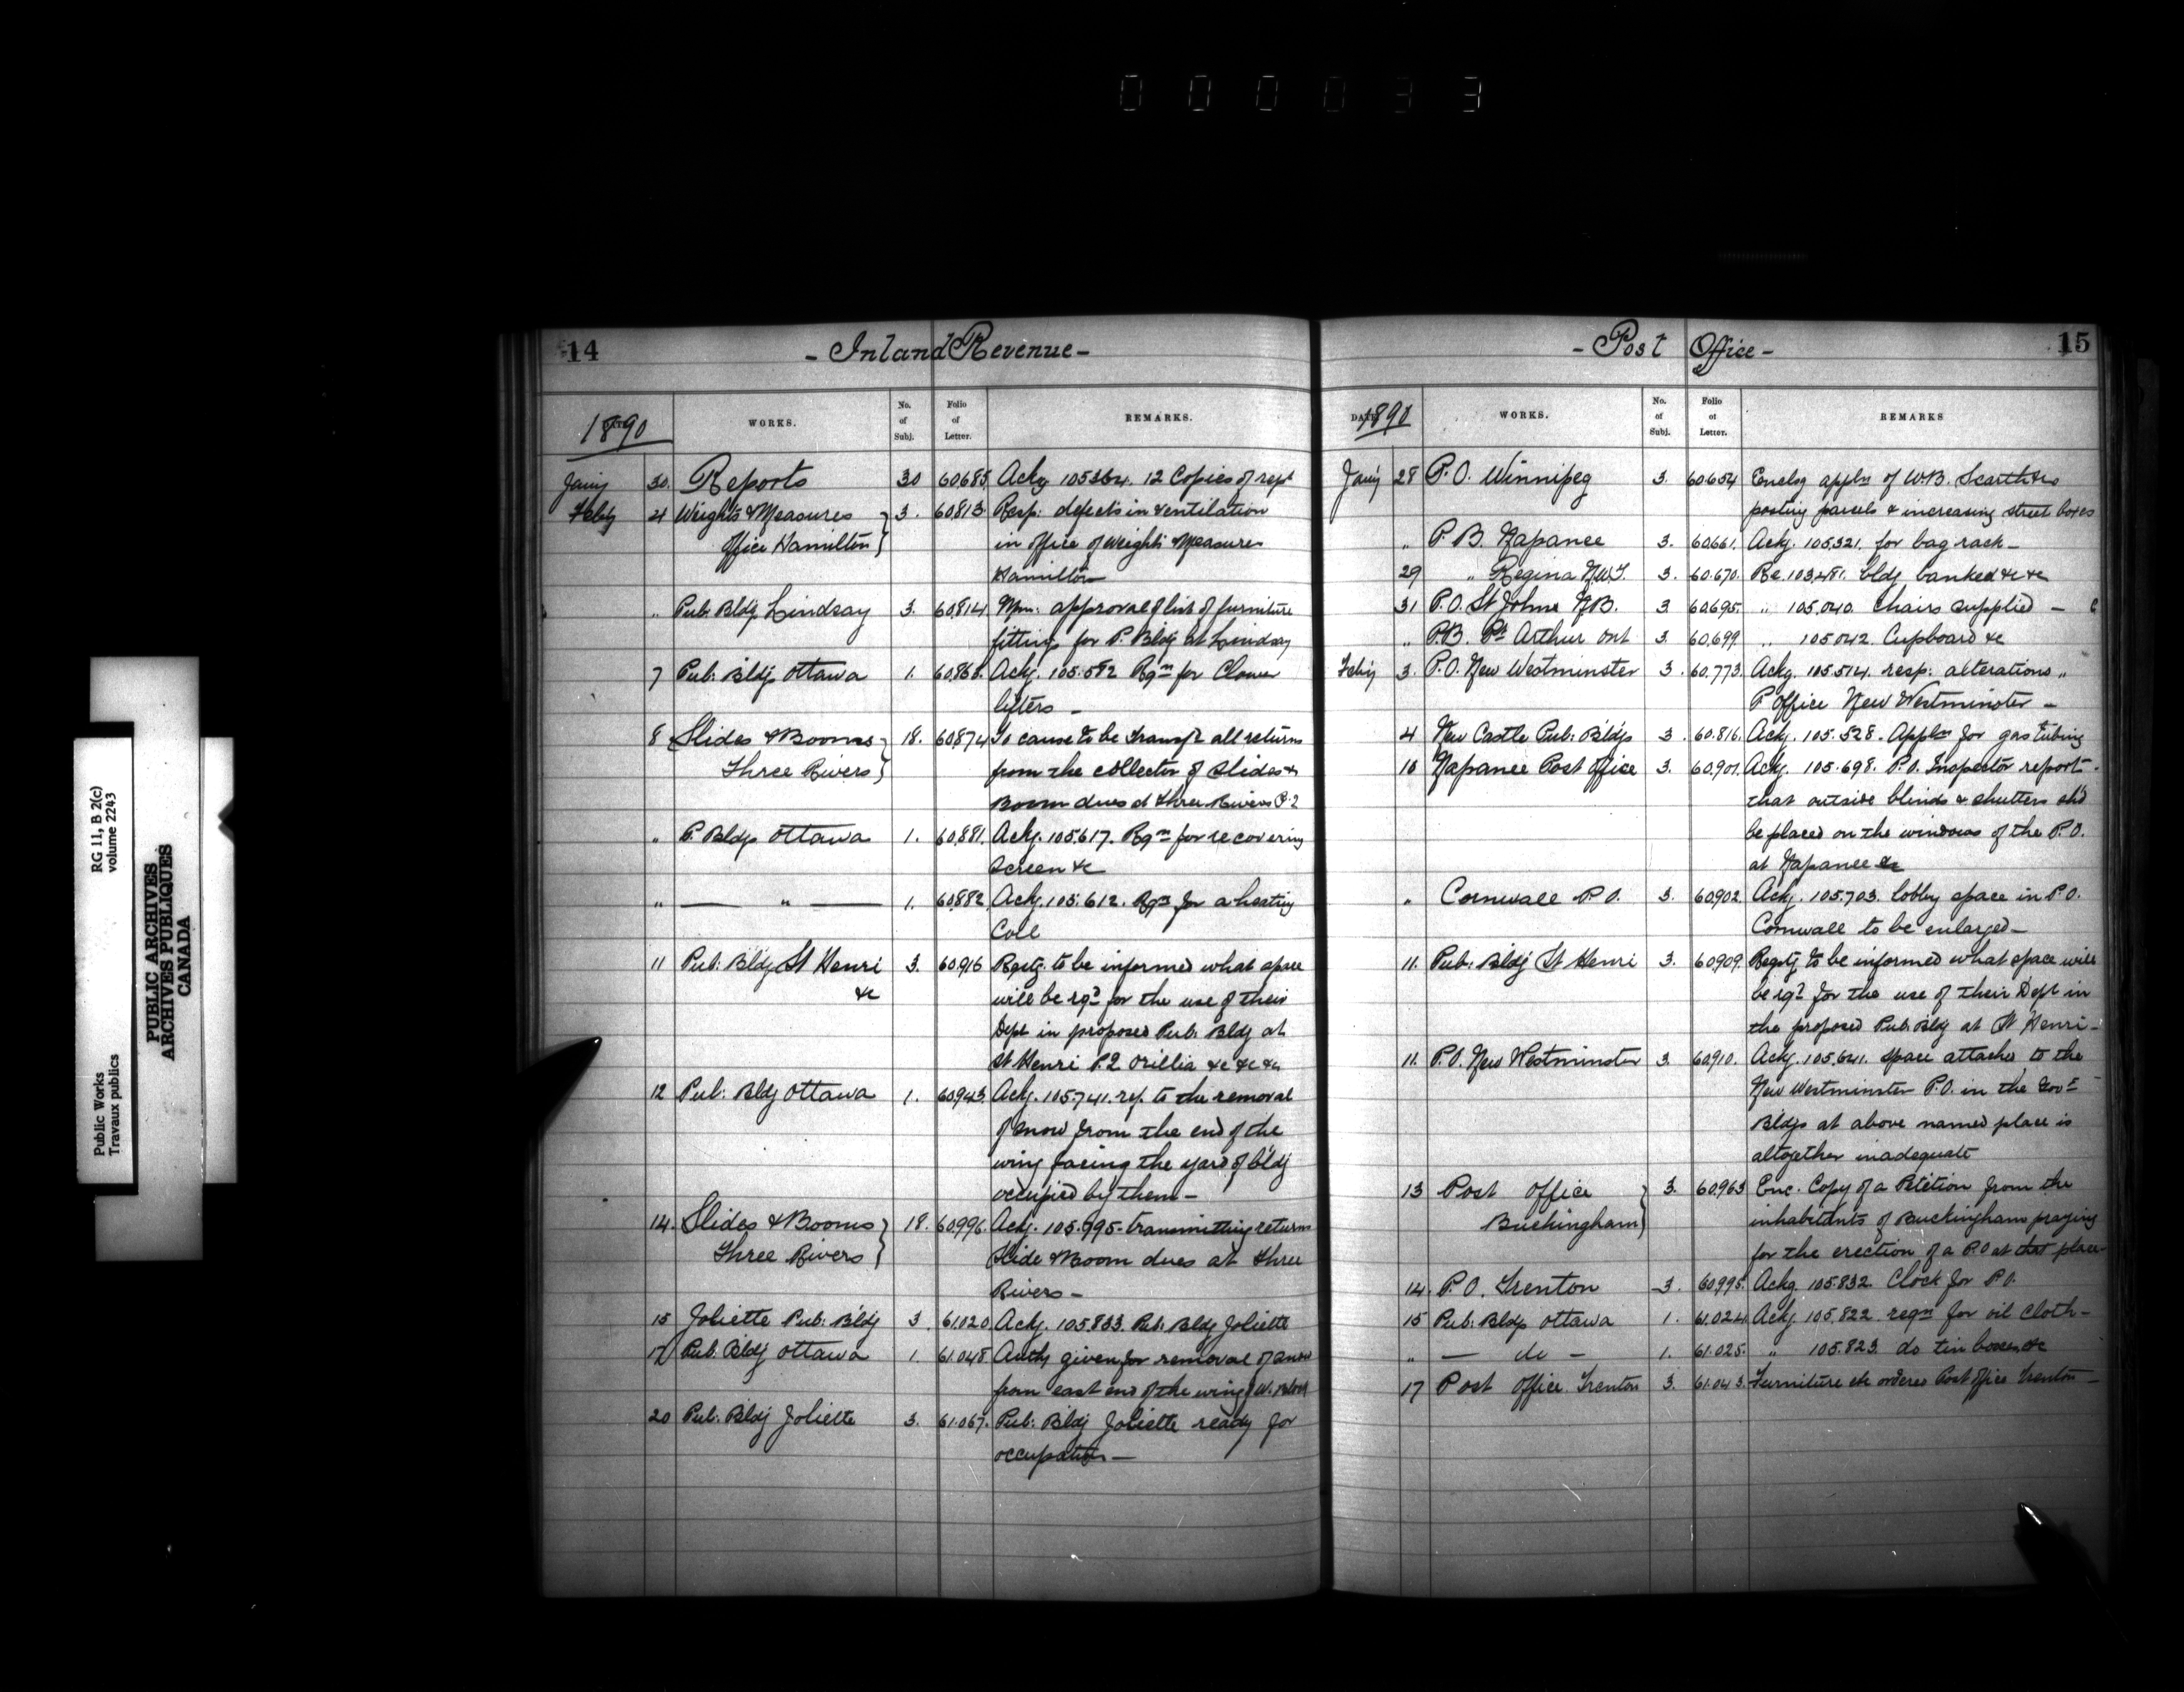 000033
RG 11, B 2(c)
volume 2243
Public Works
Travaux publics
PUBLIC ARCHIVES
ARCHIVES PUBLIQUES
CANADA
14 - Inland Revenue -
1890 WORKS. No. of Subj. Folio of Letter. REMARKS.
Jany 30. Reports 30 60.685. Ackg 105364. 12 Copies of rept
Feby 4 Weights & Measures 3. 60.813. Resp: defects in ventilation
Office Hamilton in office of Weights Measures
Hamilton
" Pub: Bldg Lindsay 3. 60.814. Mem: approval of list of furniture
fitting for P. Bldg at Lindsay
7 Pub: Bldg Ottawa 1. 60.868. Ackg. 105.582 Rqn for
lifters -
8 Slides & Booms 18. 60.874 To cause to be transfd all returns
Three Rivers from the collector of Slides &
Boom dues at Three Rivers P.2
" P. Bldgs Ottawa 1. 60.881. Ackg. 105.617. Rqn for recovering
screen &c
" — " — 1. 60.882. Ackg. 105.612. Rqn for a heating
Coil
11 Pub: Bldg St Henri 3. 60.916 Rqstg. to be informed what space
&c will be rqd for the use of their
Dept in proposed Pub. Bldg at
St Henri P.2 Orillia &c &c &c
12 Pub: Bldg Ottawa 1. 60.943. Ackg. 105.741. ref. to the removal
of snow from the end of the
wing facing the yard of bldg
occupied by them -
14. Slides & Booms 18. 60.996. Ackg. 105.795. transmitting returns
Three Rivers Slide & Boom dues at Three
Rivers -
15 Joliette Pub: Bldg 3. 61.020 Ackg. 105.833. Pub: Bldg Joliette
17 Pub: Bldg Ottawa 1. 61.048. Authy given for removal of snow
from east end of the wing of W. Block
20 Pub: Bldg Joliette 3. 61.067. Pub: Bldg Joliette ready for
occupation -
- Post Office - 15
DATE 1890 WORKS. No. of Subj. Folio of Letter. REMARKS
Jany 28 P.O. Winnipeg 3. 60.654 Enclsg appln of W.B. Scarth &
posting parcels & increasing street boxes
" P.B. Napanee 3. 60.661. Ackg. 105.321. for bag rack -
29 " Regina N.W.T. 3. 60.670. Re. 103.481. bldg banked &c &c
31 P.O. St Johns N.B. 3 60.695. " 105.040. Chairs supplied -
" P.B. Pt Arthur Ont 3 60.699. " 105.042. Cupboard &c
Feby 3. P.O. New Westminster 3. 60.773. Ackg. 105.514. resp: alterations "
P. Office New Westminster -
4 New Castle Pub: Bldgs 3. 60.816. Ackg. 105.528. Appln for gas tubing
10 Napanee Post Office 3. 60.901. Ackg. 105.698. P.O. Inspector report -
that outside blinds & shutters shd
be placed on the windows of the P.O.
at Napanee &c
" Cornwall P.O. 3. 60.902. Ackg. 105.703. lobby space in P.O.
Cornwall to be enlarged -
11. Pub: Bldg St Henri 3. 60.909. Rqstg to be informed what space will
be rqd for the use of their Dept in
the proposed Pub: Bldg at St Henri -
11. P.O. New Westminster 3. 60.910. Ackg. 105.641. Space attached to the
New Westminster P.O. in the Govt
Bldgs at above named place is
altogether inadequate
13 Post Office 3. 60.963 Enc. Copy of a Petition from the
Buckingham inhabitants of Buckingham praying
for the erection of a P.O at that place -
14. P.O. Trenton 3. 60.995. Ackg. 105.832 Clock for P.O.
15 Pub: Bldgs Ottawa 1. 61.024. Ackg 105.822 reqn for oil cloth -
" — do - 1. 61.025. " 105.823. do tin boxes &c
17 Post Office Trenton 3. 61.043. Furniture etc ordered Post Office Trenton -